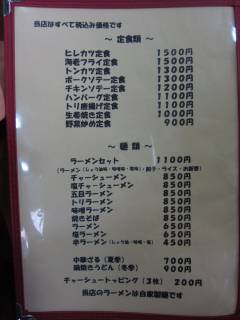 当店はすべて税込み価格です
～ 定食類 ～
ヒレカツ定食 1500円
海老フライ定食 1500円
トンカツ定食 1300円
ポークソテー定食 1300円
チキンソテー定食 1200円
ハンバーグ定食 1100円
トリ唐揚げ定食 1100円
生姜焼き定食 1000円
野菜炒め定食 900円
～ 麺類 ～
ラーメンセット 1100円
チャーシューメン 850円
塩チャーシューメン 850円
五目ラーメン 850円
トリラーメン 850円
味噌ラーメン 850円
焼きそば 850円
ラーメン 650円
塩ラーメン 650円
辛ラーメン 450円
中華ざる（夏季） 700円
鍋焼きうどん（冬季） 900円
チャーシュートッピング（3枚） 200円
当店のラーメンは自家製麺です